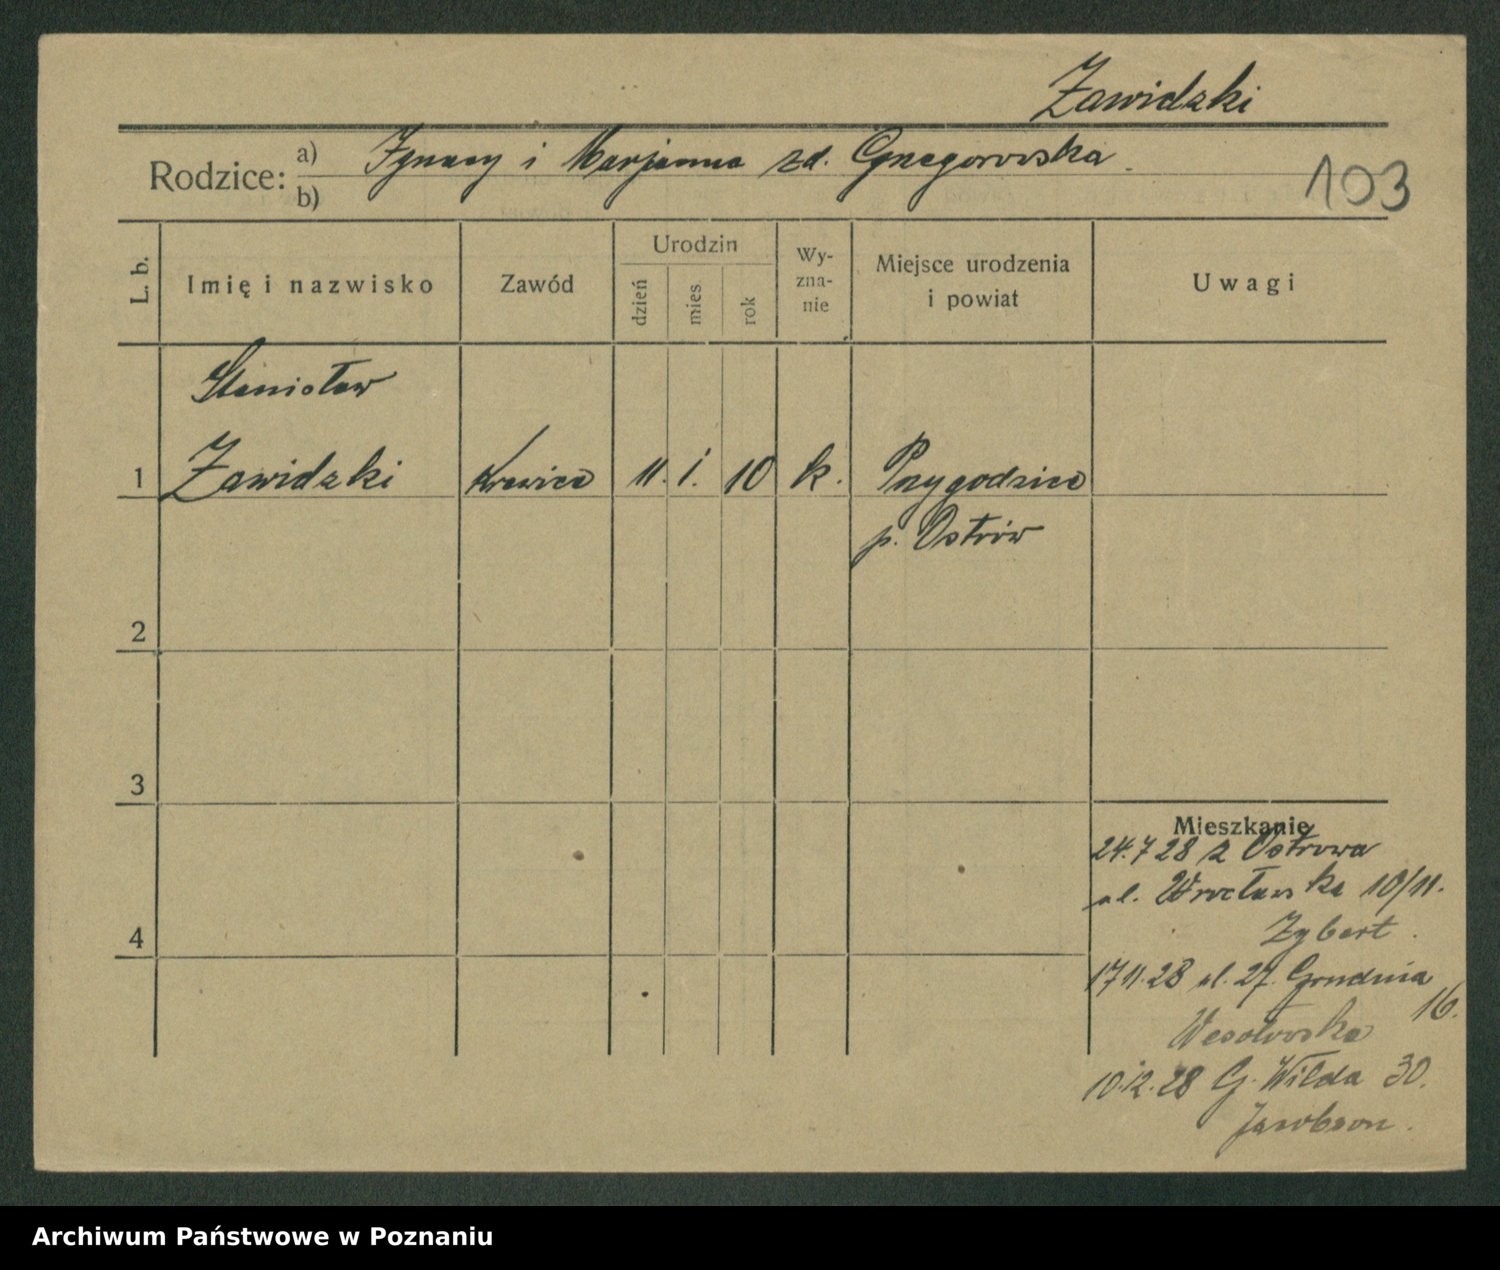 Zawidzki
Rodzice: a) Ignacy i Marjanna zd. Grzegorowska
b)
103
L. b.
Imię i nazwisko
Zawód
Urodzin
dzień
mies.
rok
Wy-
zna-
nie
Miejsce urodzenia
i powiat
Uwagi
Stanisław
1 Zawidzki krawiec 11. 1. 10 k. Przygodzice
p. Ostrów
2
3
4
Mieszkanie
24.7 28 z Ostrowa
ul. Wrocławska 10/11.
Zybert.
17 11. 28 ul. 27. Grudnia
16.
Wesołowska
10.12.28 G. Wilda 30.
Jacobson.
Archiwum Państwowe w Poznaniu